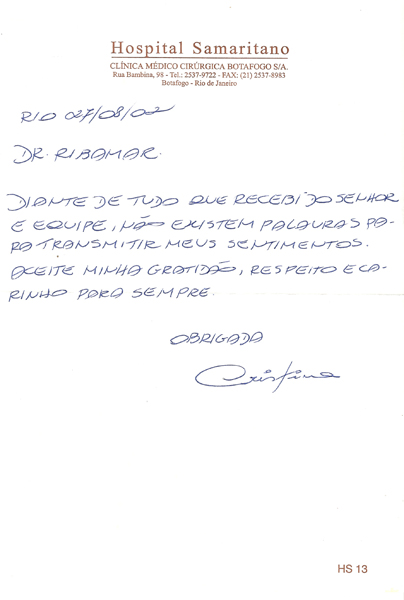 Hospital Samaritano
CLÍNICA MÉDICO CIRÚRGICA BOTAFOGO S/A.
Rua Bambina, 98 - Tel.: 2537-9722 - FAX: (21) 2537-8983
Botafogo - Rio de Janeiro
RIO 027/08/02
DR. RIBAMAR.
DIANTE DE TUDO QUE RECEBI DO SENHOR
E EQUIPE, NÃO EXISTEM PALAVRAS PA-
RA TRANSMITIR MEUS SENTIMENTOS.
ACEITE MINHA GRATIDÃO, RESPEITO E CA-
RINHO PARA SEMPRE.
OBRIGADA
Cristina
HS 13